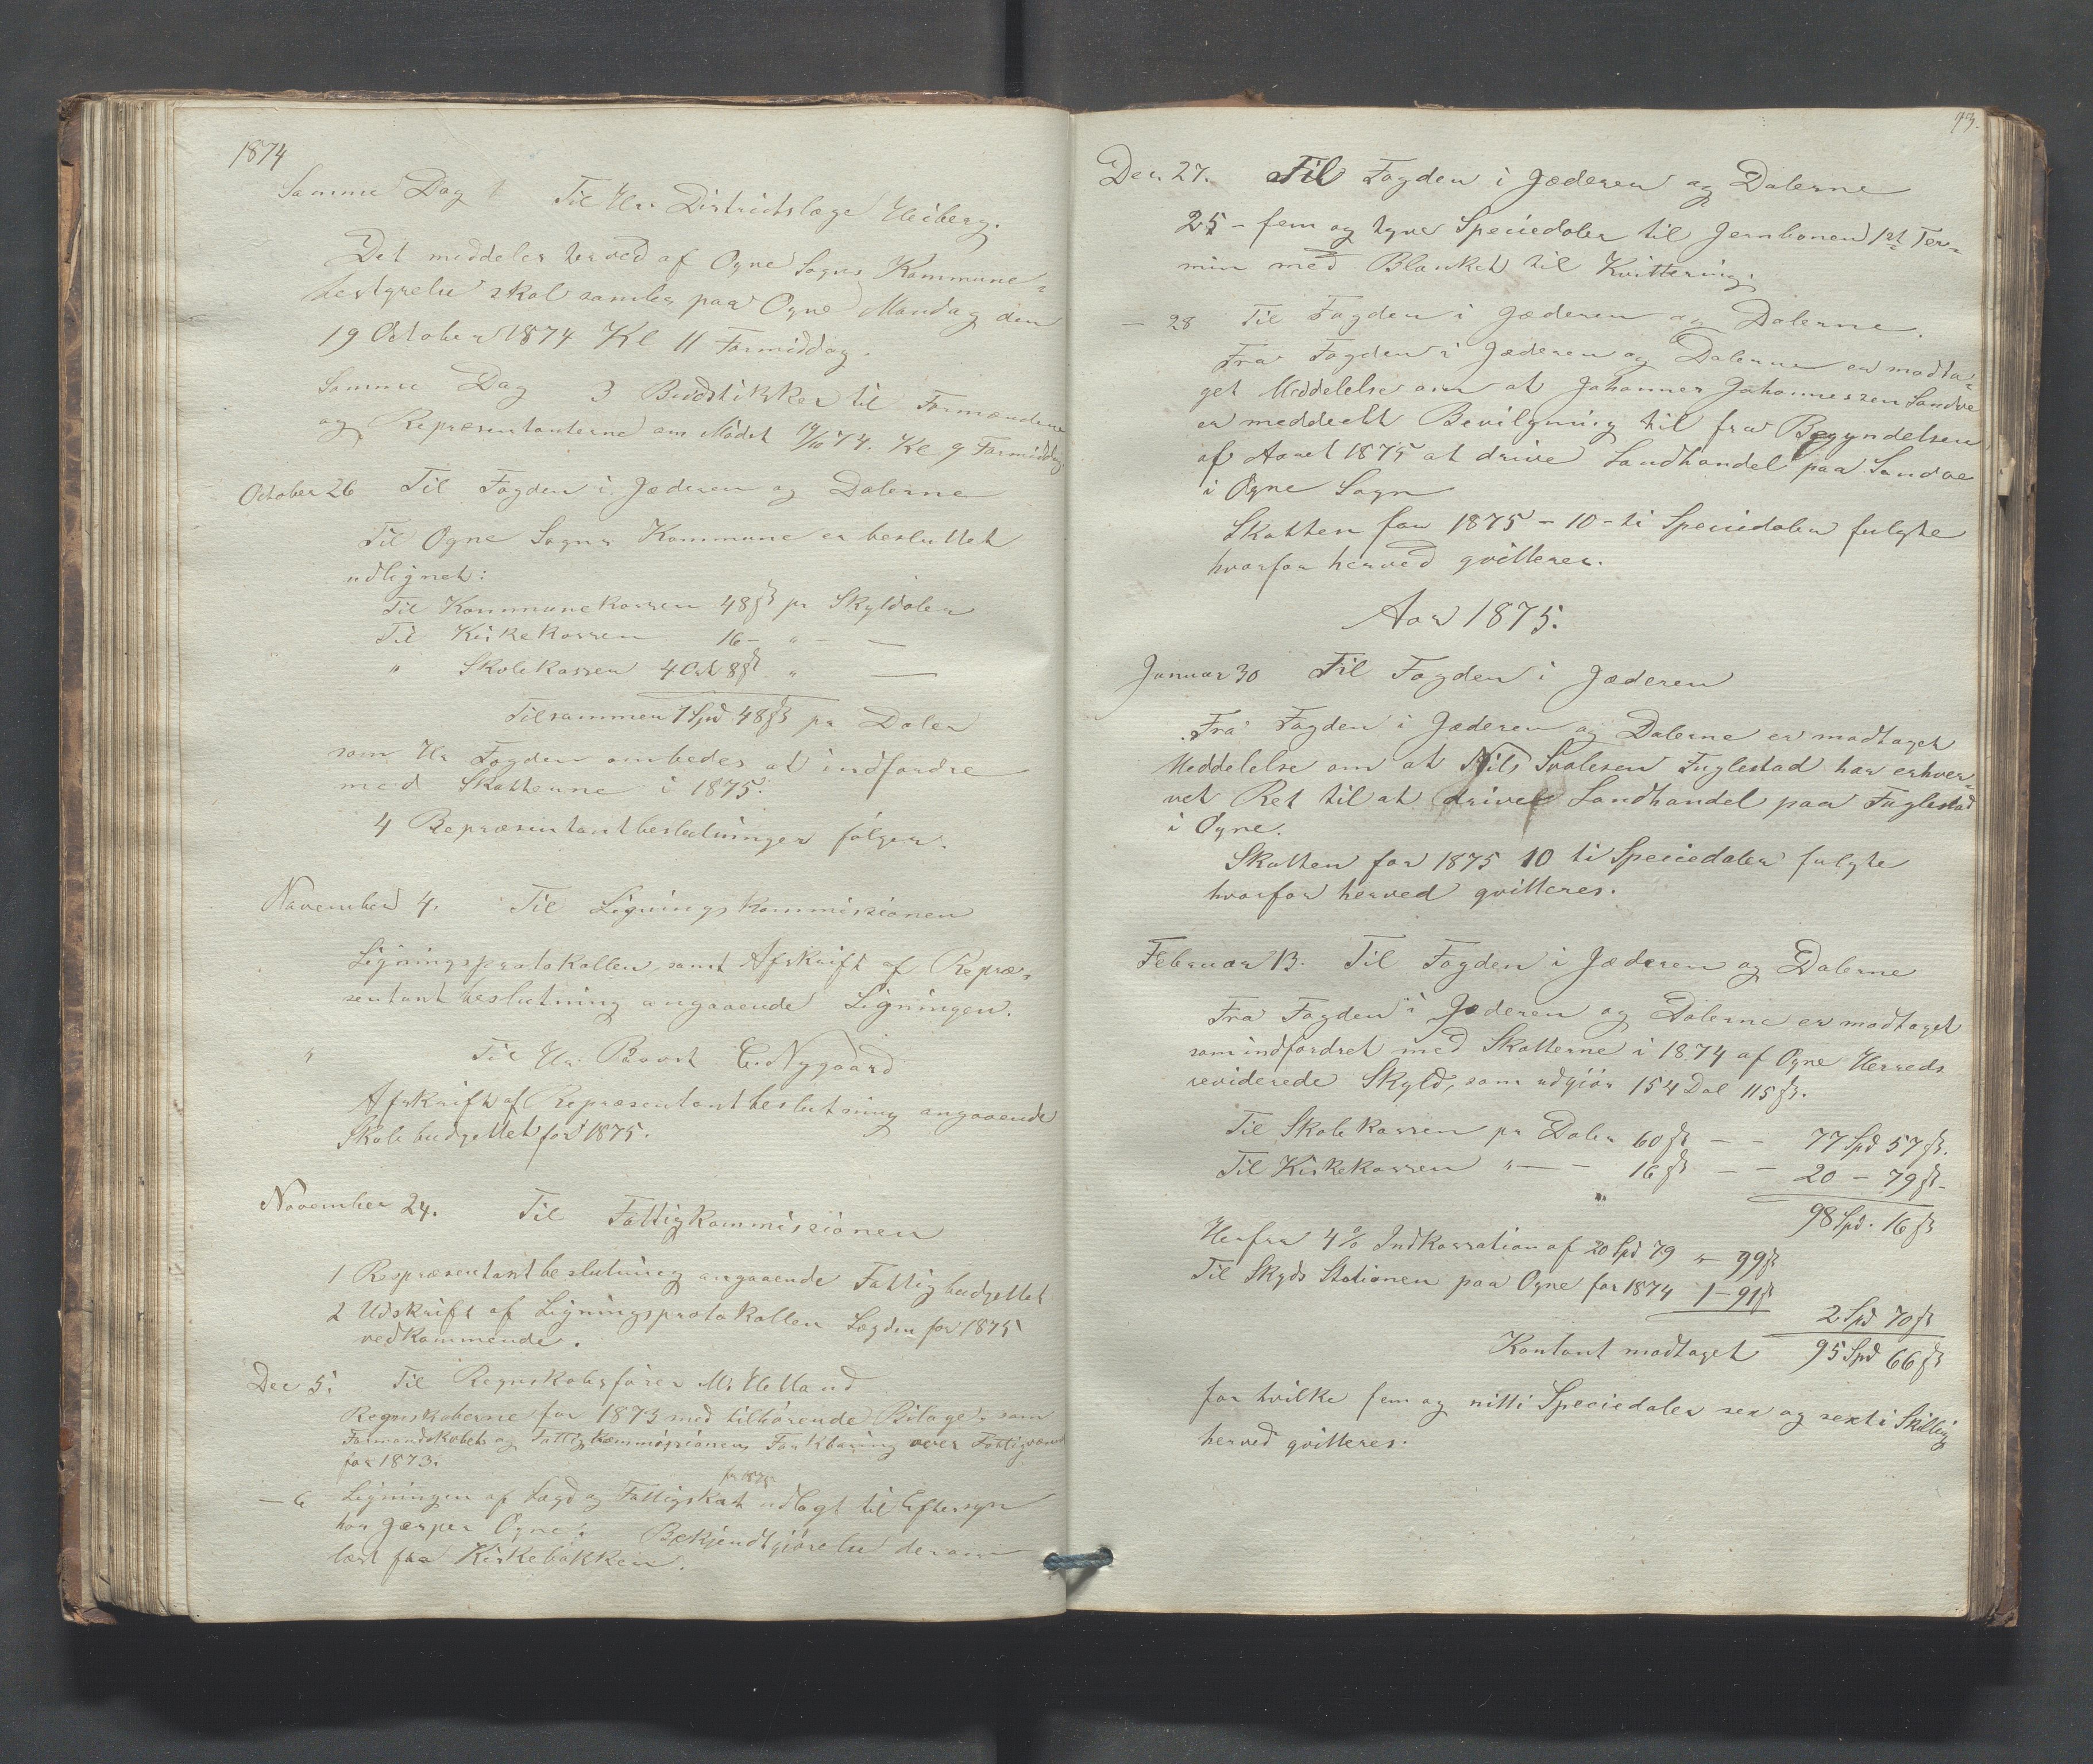 1874
Samme Dag Til Hr. Distriktslæge Heiberg.
Det meddeles herved af Ogne Sogns Kommune-
bestyrelse skal samles paa Ogne Mandag den
19 October 1874 Kl 11 Formiddag.
Samme Dag 3 Budstikker til Formændene
og Repræsentanterne om Mødet 19/10 74. Kl 9 Formiddag.
October 26 Til Fogden i Jæderen og Dalerne
Til Ogne Sogns Kommune er besluttet
udlignet:
Til Kommunekassen 48 ß pr Skyldaler
Til Kirkekassen 16 - " - —
" Skolekassen 4 Ort 8 ß " —
Tilsammen 1 Spd 48 ß pr Daler
som Hr Fogden ombedes at indfordre
med Skatterne i 1875.
4 Repræsentantbeslutninger følger.
November 4. Til Ligningskommissionen
Ligningsprotokollen samt Afskrift af Repræ-
sentantbeslutning angaaende Ligningen.
" Til Hr. Provst E. Nygaard
Afskrift af Repræsentantbeslutning angaaende
Skolebudgettet for 1875.
November 24. Til Fattigkommissionen
1 Repræsentantbeslutning angaaende Fattigbudgettet
2 Udskrift af Ligningsprotokollen Lægden for 1875
vedkommende.
Dec 5. Til Regnskabsfører M. Hetland
Regnskaberne for 1873 med tilhørende Bilage, som
Formandskabets og Fattigkommissionens Forklaring over Fattigvæsnet
for 1873.
for 1875
— 6 Ligningen af Lægd og Fattigskat udlagt til Eftersyn
hos Jesper Ogne. Bekjendtgjørelse derom
læst fra Kirkebakken.
93.
Dec. 27. Til Fogden i Jæderen og Dalerne
25 - fem og tyve Speciedaler til Jernbanen 1ste Ter-
min med Blanket til Kvittering.
— 28 Til Fogden i Jæderen og Dalerne.
Fra Fogden i Jæderen og Dalerne er modta-
get Meddelelse om at Johannes Johannessen Sandve
er meddeelt Bevilgning til fra Begyndelsen
af Aaret 1875 at drive Landhandel paa Sandve
i Ogne Sogn
Skatten for 1875 - 10 - ti Speciedaler fulgte
hvorfor herved qvitteres.
Aar 1875.
Januar 30 Til Fogden i Jæderen
Fra Fogden i Jæderen og Dalerne er modtaget
Meddelelse om at Nils Svalesen Fuglestad har erhver-
vet Ret til at drive Landhandel paa Fuglestad
i Ogne.
Skatten for 1875 10 ti Speciedaler fulgte
hvorfor herved qvitteres.
Februar 13. Til Fogden i Jæderen og Dalerne
Fra Fogden i Jæderen og Dalerne er modtaget
som indfordret med Skatterne i 1874 af Ogne Herreds
reviderede Skyld, som udgjør 154 Dal 115 ß.
Til Skolekassen pr Daler 60 ß - - 77 Spd 57 ß.
Til Kirkekassen " — - 16 ß - - 20 - 79 ß -
98 Spd. 16 ß
Herfra 4 % Indkassation af 20 Spd 79 " - 99 ß
Til Skyds Stationen paa Ogne for 1874 1 - 91 ß
2 Spd 70 ß
Kontant modtaget 95 Spd 66 ß
for hvilke fem og nitti Speciedaler sex og sexti Skilling
herved qvitteres.